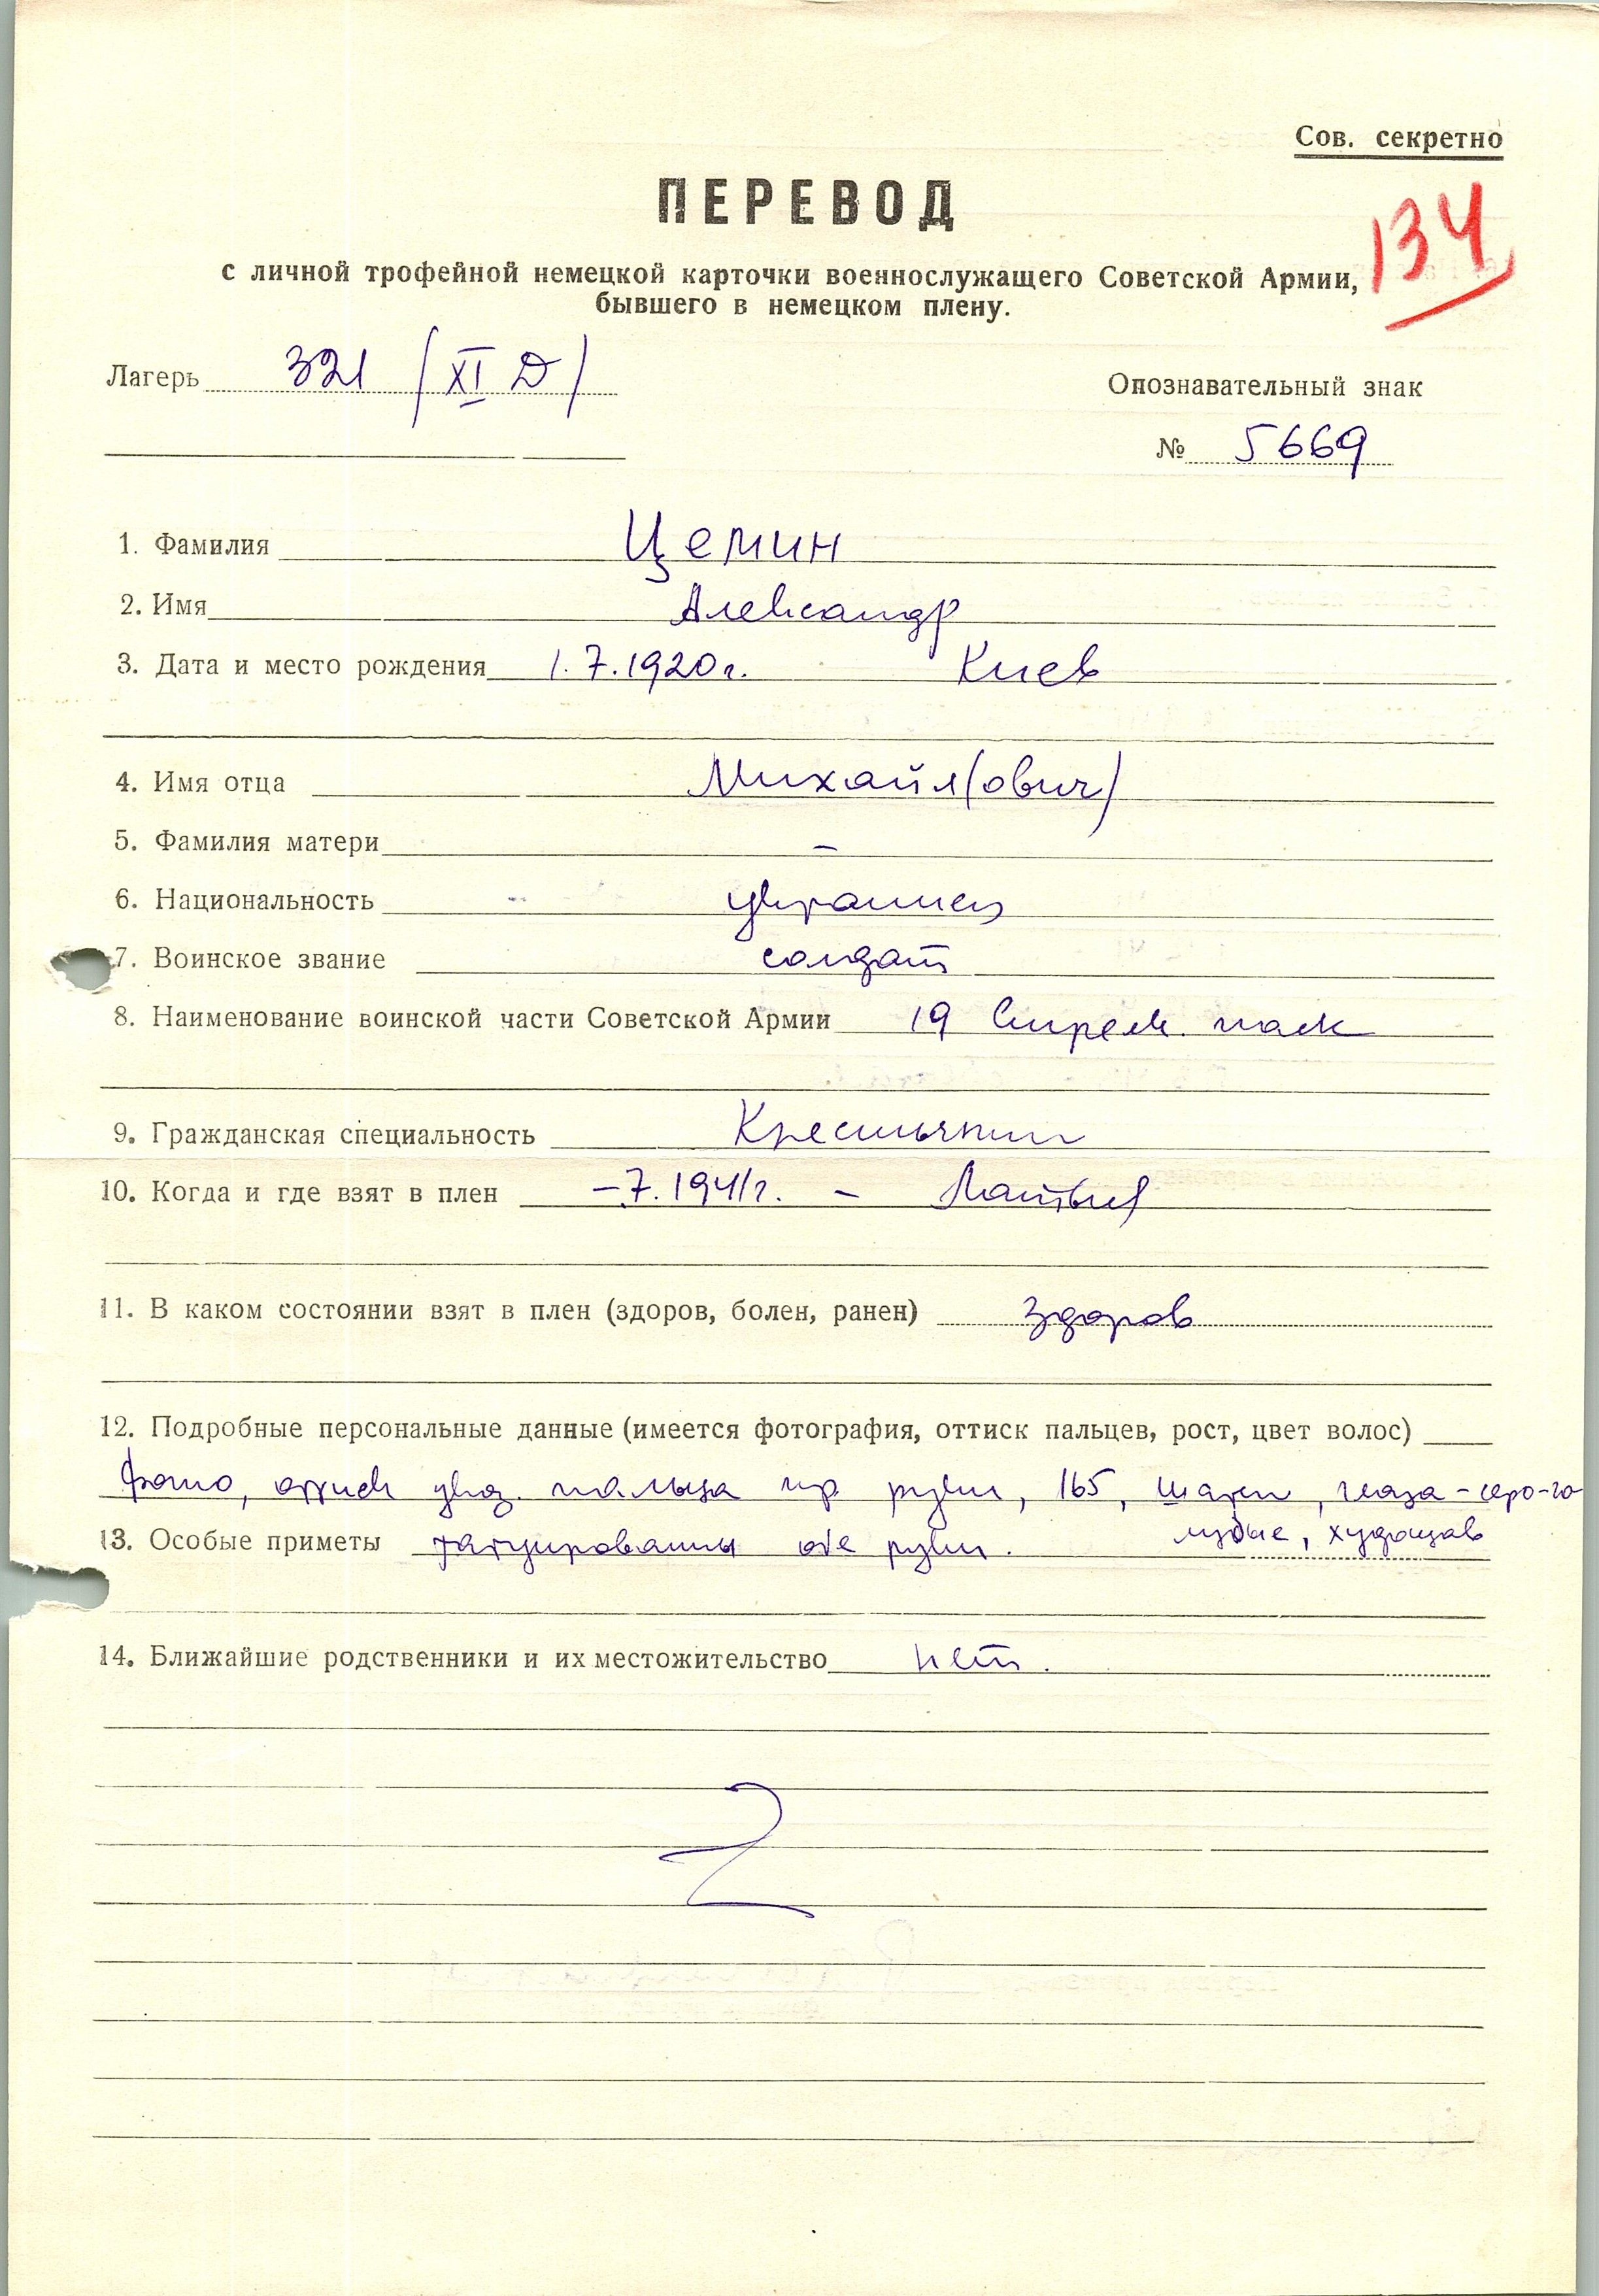 Сов. секретно
ПЕРЕВОД
134
с личной трофейной немецкой карточки военнослужащего Советской Армии,
бывшего в немецком плену.
Лагерь 321 /XI D/
Опознавательный знак
№ 5669
1. Фамилия Цемин
2. Имя Александр
3. Дата и место рождения 1.7.1920г. Киев
4. Имя отца Михайл(ович)
5. Фамилия матери –
6. Национальность украинец
7. Воинское звание солдат
8. Наименование воинской части Советской Армии 19 Стрелк. полк
9. Гражданская специальность Крестьянин
10. Когда и где взят в плен –7.1941г. – Латвия
11. В каком состоянии взят в плен (здоров, болен, ранен) здоров
12. Подробные персональные данные (имеется фотография, оттиск пальцев, рост, цвет волос)
фото, оттиск указ. пальца пр руки, 165, шатен, глаза - серо-го
лубые, худощав
13. Особые приметы татуированы обе руки.
14. Ближайшие родственники и их местожительство нет.